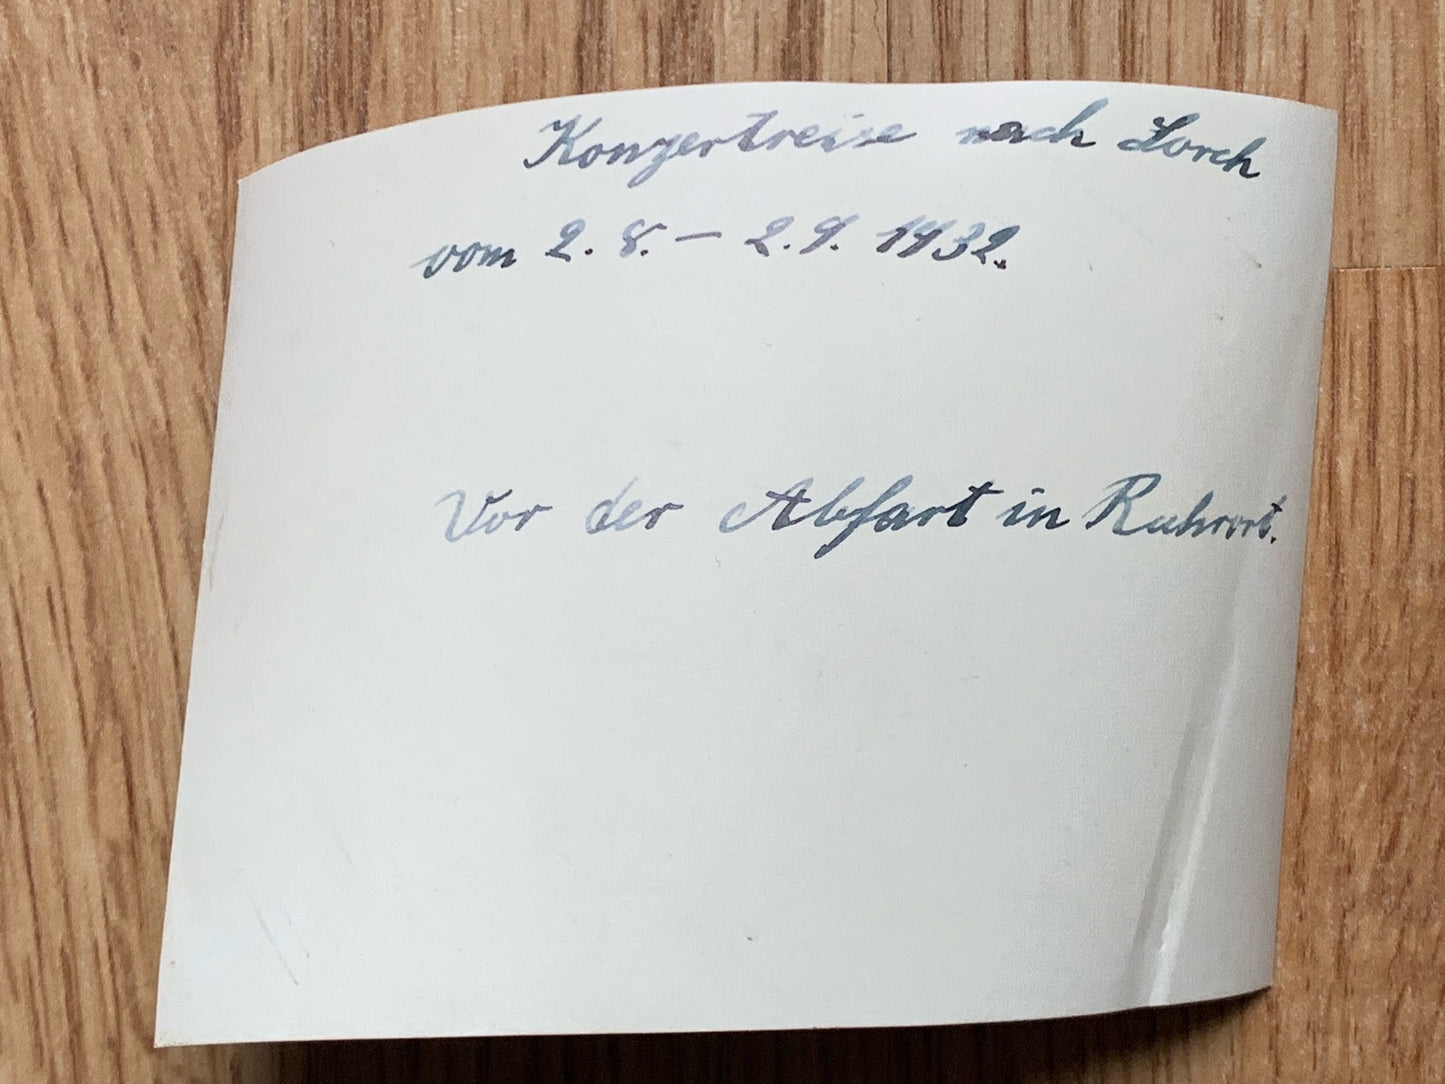 Konzertreise nach Lorch
vom 2. 8. – 2. 9. 1932.
Vor der Abfart in Ruhrort.